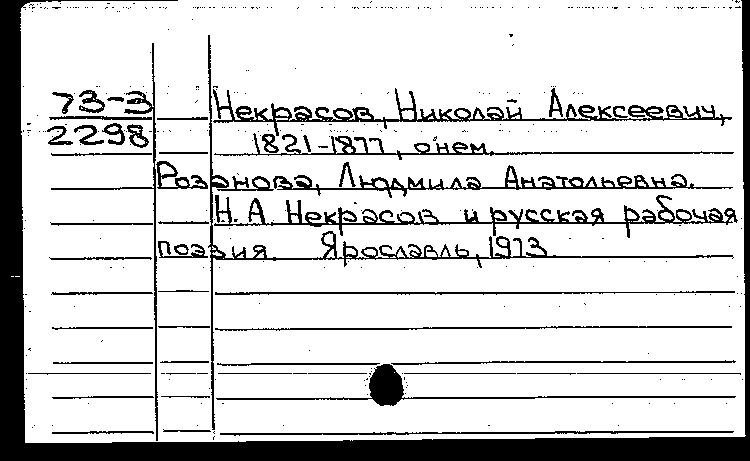 73-3 Некрасов, Николай Алексеевич,
2298 1821-1877, о нем.
Розанова, Людмила Анатольевна.
Н.А. Некрасов и русская рабочая
поэзия. Ярославль, 1973.